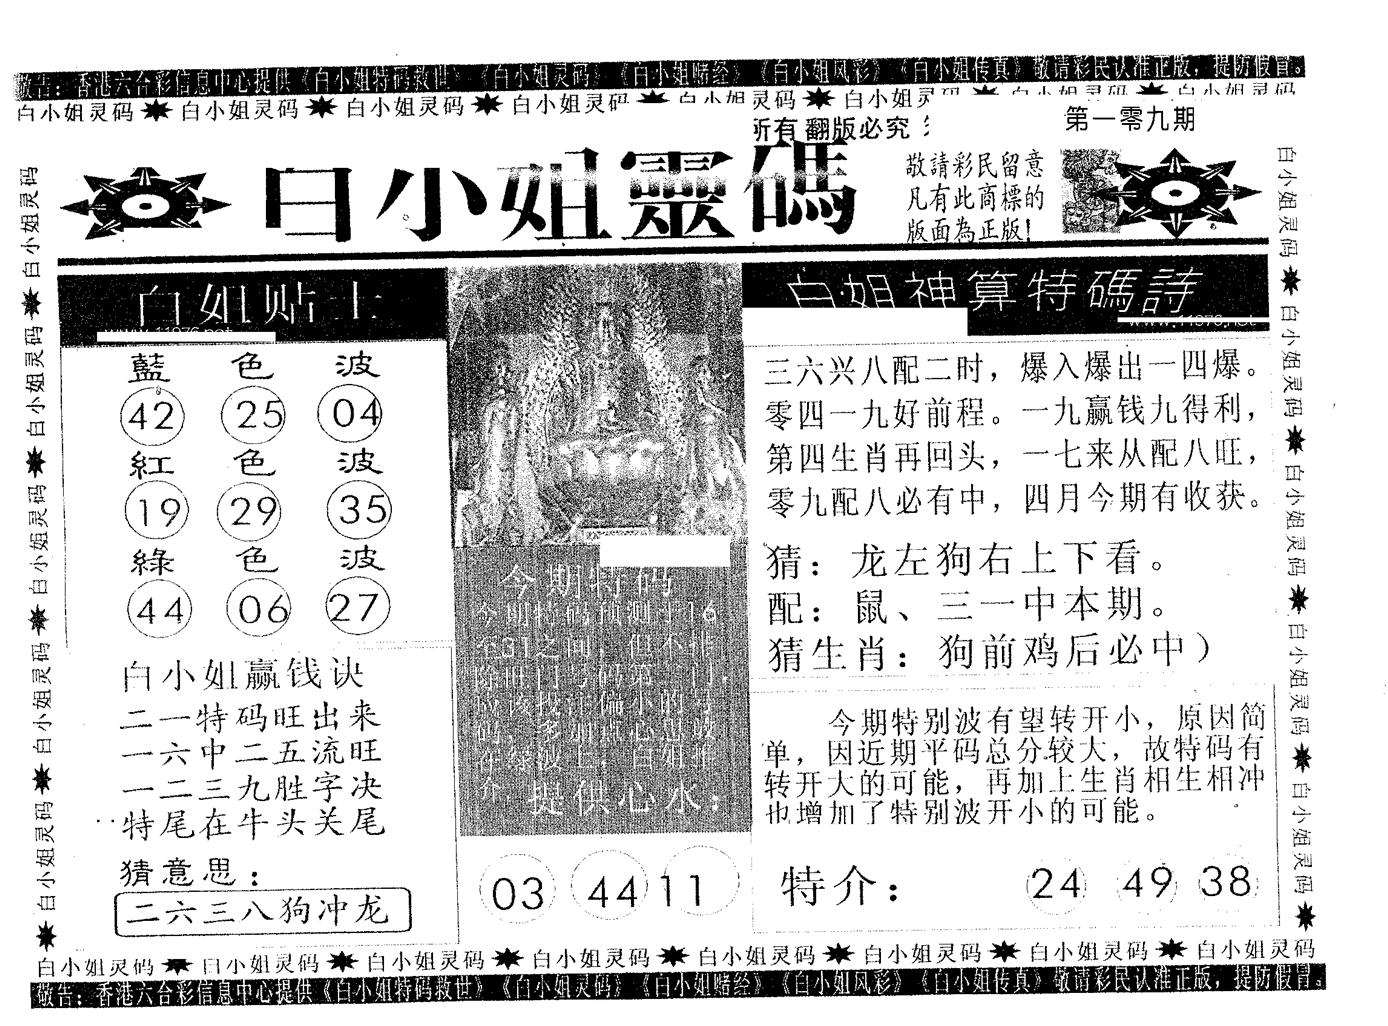 敬告：香港六合彩信息中心提供《白小姐特码救世》《白小姐灵码》《白小姐赌经》《白小姐风彩》《白小姐传真》敬请彩民认准正版，提防假冒。
白小姐灵码 白小姐灵码 白小姐灵码 白小姐灵码 白小姐灵码 白小姐灵码 白小姐灵码 白小姐灵码
所有 翻版必究
第一零九期
白小姐靈碼
敬請彩民留意
凡有此商標的
版面為正版！
白小姐灵码 白小姐灵码 白小姐灵码 白小姐灵码 白小姐灵码
白姐贴士
www.11976.net
藍色波
42 25 04
紅色波
19 29 35
綠色波
44 06 27
白小姐赢钱诀
二一特码旺出来
一六中二五流旺
一二三九胜字决
特尾在牛头关尾
猜意思：
二六三八狗冲龙
今期特码
提供心水：
03 44 11
白姐神算特碼詩
www.11976.net
三六兴八配二时，爆入爆出一四爆。
零四一九好前程。一九赢钱九得利，
第四生肖再回头，一七来从配八旺，
零九配八必有中，四月今期有收获。
猜：龙左狗右上下看。
配：鼠、三一中本期。
猜生肖：狗前鸡后必中）
今期特别波有望转开小，原因简
单，因近期平码总分较大，故特码有
转开大的可能，再加上生肖相生相冲
也增加了特别波开小的可能。
特介： 24 49 38
白小姐灵码 白小姐灵码 白小姐灵码 白小姐灵码 白小姐灵码
白小姐灵码 白小姐灵码 白小姐灵码 白小姐灵码 白小姐灵码 白小姐灵码 白小姐灵码 白小姐灵码
敬告：香港六合彩信息中心提供《白小姐特码救世》《白小姐灵码》《白小姐赌经》《白小姐风彩》《白小姐传真》敬请彩民认准正版，提防假冒。